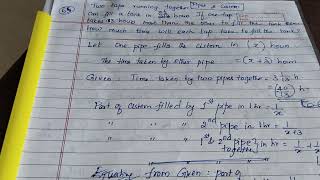 65
Two taps running together
can fill a tank in hours. If one tap
takes hours more than the to fill the tank
How much time will each tap take to fill the tank?
Let one pipe fills the cistern in (x) hours
The time taken by other pipe = (x+3) hours
Given Time taken by two pipes together = 3 1/13 h
= (40/13) h
Part of cistern filled by 1st pipe in 1 hr = 1/x
" " " 2nd pipe in 1 hr = 1/x+3
" " " 1st & 2nd pipe together in 1 hr = 1/x + 1/x
from Given: part of